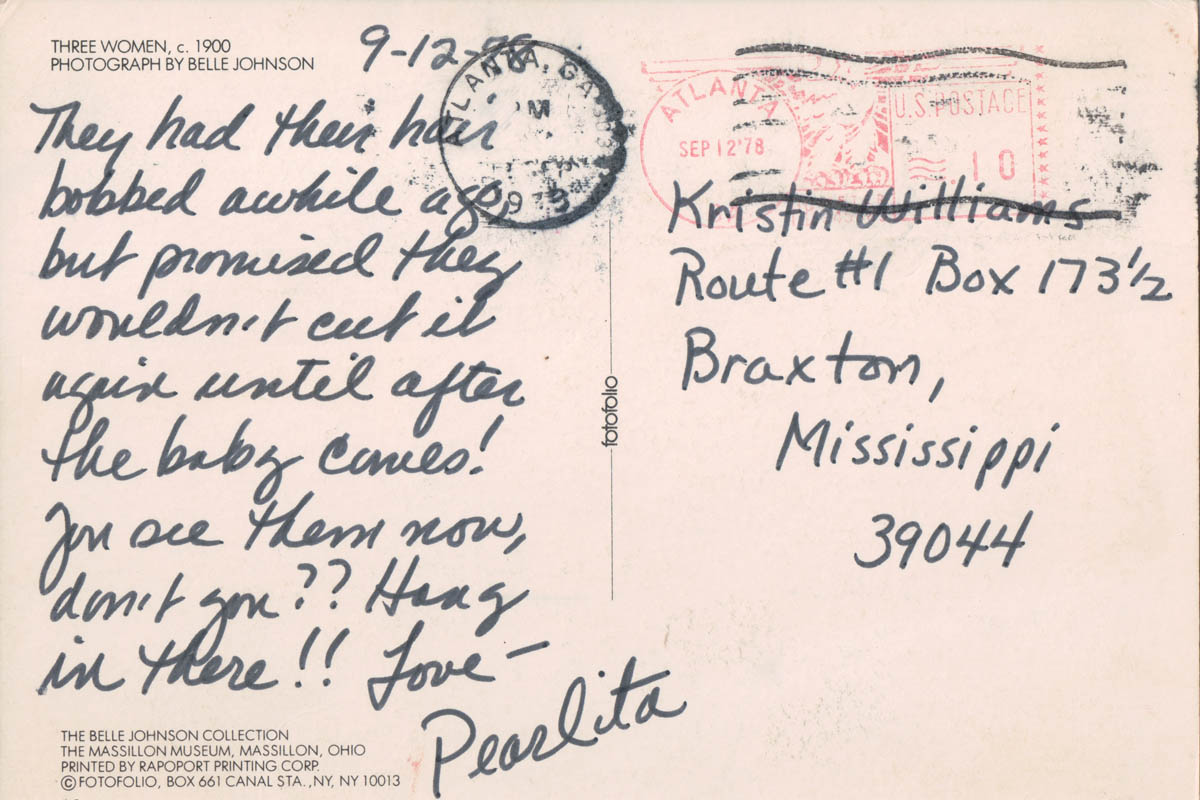 THREE WOMEN, c. 1900
PHOTOGRAPH BY BELLE JOHNSON
9-12-78
They had their hair
bobbed awhile ago,
but promised they
wouldn't cut it
again until after
the baby comes!
You see them now,
don't you?? Hang
in there!! Love —
Pearlita
THE BELLE JOHNSON COLLECTION
THE MASSILLON MUSEUM, MASSILLON, OHIO
PRINTED BY RAPOPORT PRINTING CORP.
© FOTOFOLIO, BOX 661 CANAL STA., NY, NY 10013
fotofolio
ATLANTA, GA
PM
ATLANTA
SEP 12'78
U.S. POSTAGE
10
Kristin Williams
Route #1 Box 173½
Braxton,
Mississippi
39044